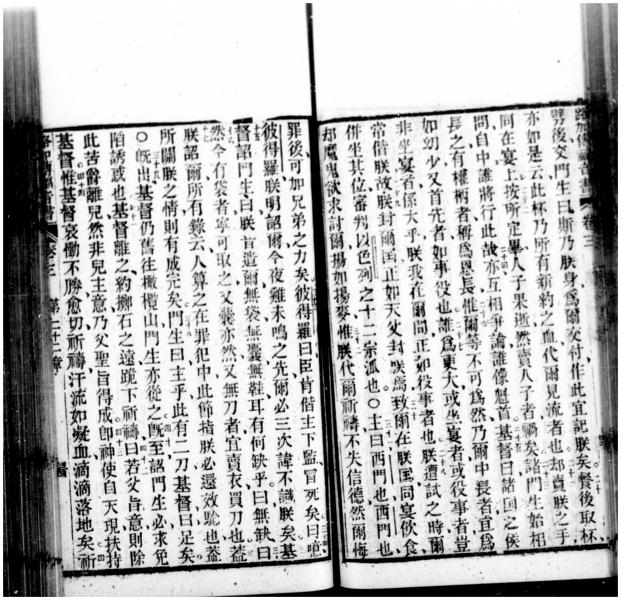 路加傳福音書 卷三
劈後交門生曰斯乃朕身爲爾交付作此宜記朕矣餐後取杯
亦如是云此杯乃所有新約之血代爾見流者也却賣朕之手
同在宴上按所定畢人子果逝然賣人子者禍矣諸門生始相
問自中誰將行此哉亦互相爭論誰像魁首基督曰諸國之侯
長之有權柄者稱爲恩長惟爾等不可爲然乃爾中長者宜爲
如幼少又首先者如事役也誰爲更大或坐宴者或役事者豈
非坐宴者係大乎朕我在爾間正如役事者也朕遭試之時爾
常偕朕故朕封爾国正如天父封朕焉致爾在朕国同宴飲食
併坐其位審判以色列之十二宗派也〇主曰西門也西門也
却魔鬼欲求討爾揚如揚麥惟朕代爾祈禱不失信德然爾悔
罪後可加兄弟之力矣彼得羅曰臣肯偕主下監冒死矣曰噫
彼得羅朕明詔爾今夜雞未鳴之先爾必三次諱不識朕矣基
督詔門生曰朕遣爾無袋無囊無鞋耳有何缺乎曰無缺曰
然今有袋者寧可取之又囊亦然又無刀者宜賣衣買刀也蓋
朕詔爾所有錄云人算之在罪犯中此節指朕必還效驗也蓋
所關朕之情則有成完矣門生曰主乎此有二刀基督曰足矣
〇旣出基督仍舊往橄欖山門生亦從之旣至詔門生必求免
陷誘惑也基督離之約擲石之遠跪下祈禱曰若父旨意則除
此苦爵離兒然非兒主意乃父聖旨得成卽神使自天現扶持
基督惟基督哀慟不勝愈切祈禱汗流如凝血滴滴落地矣祈
路加傳福音書 卷三 第二十二章